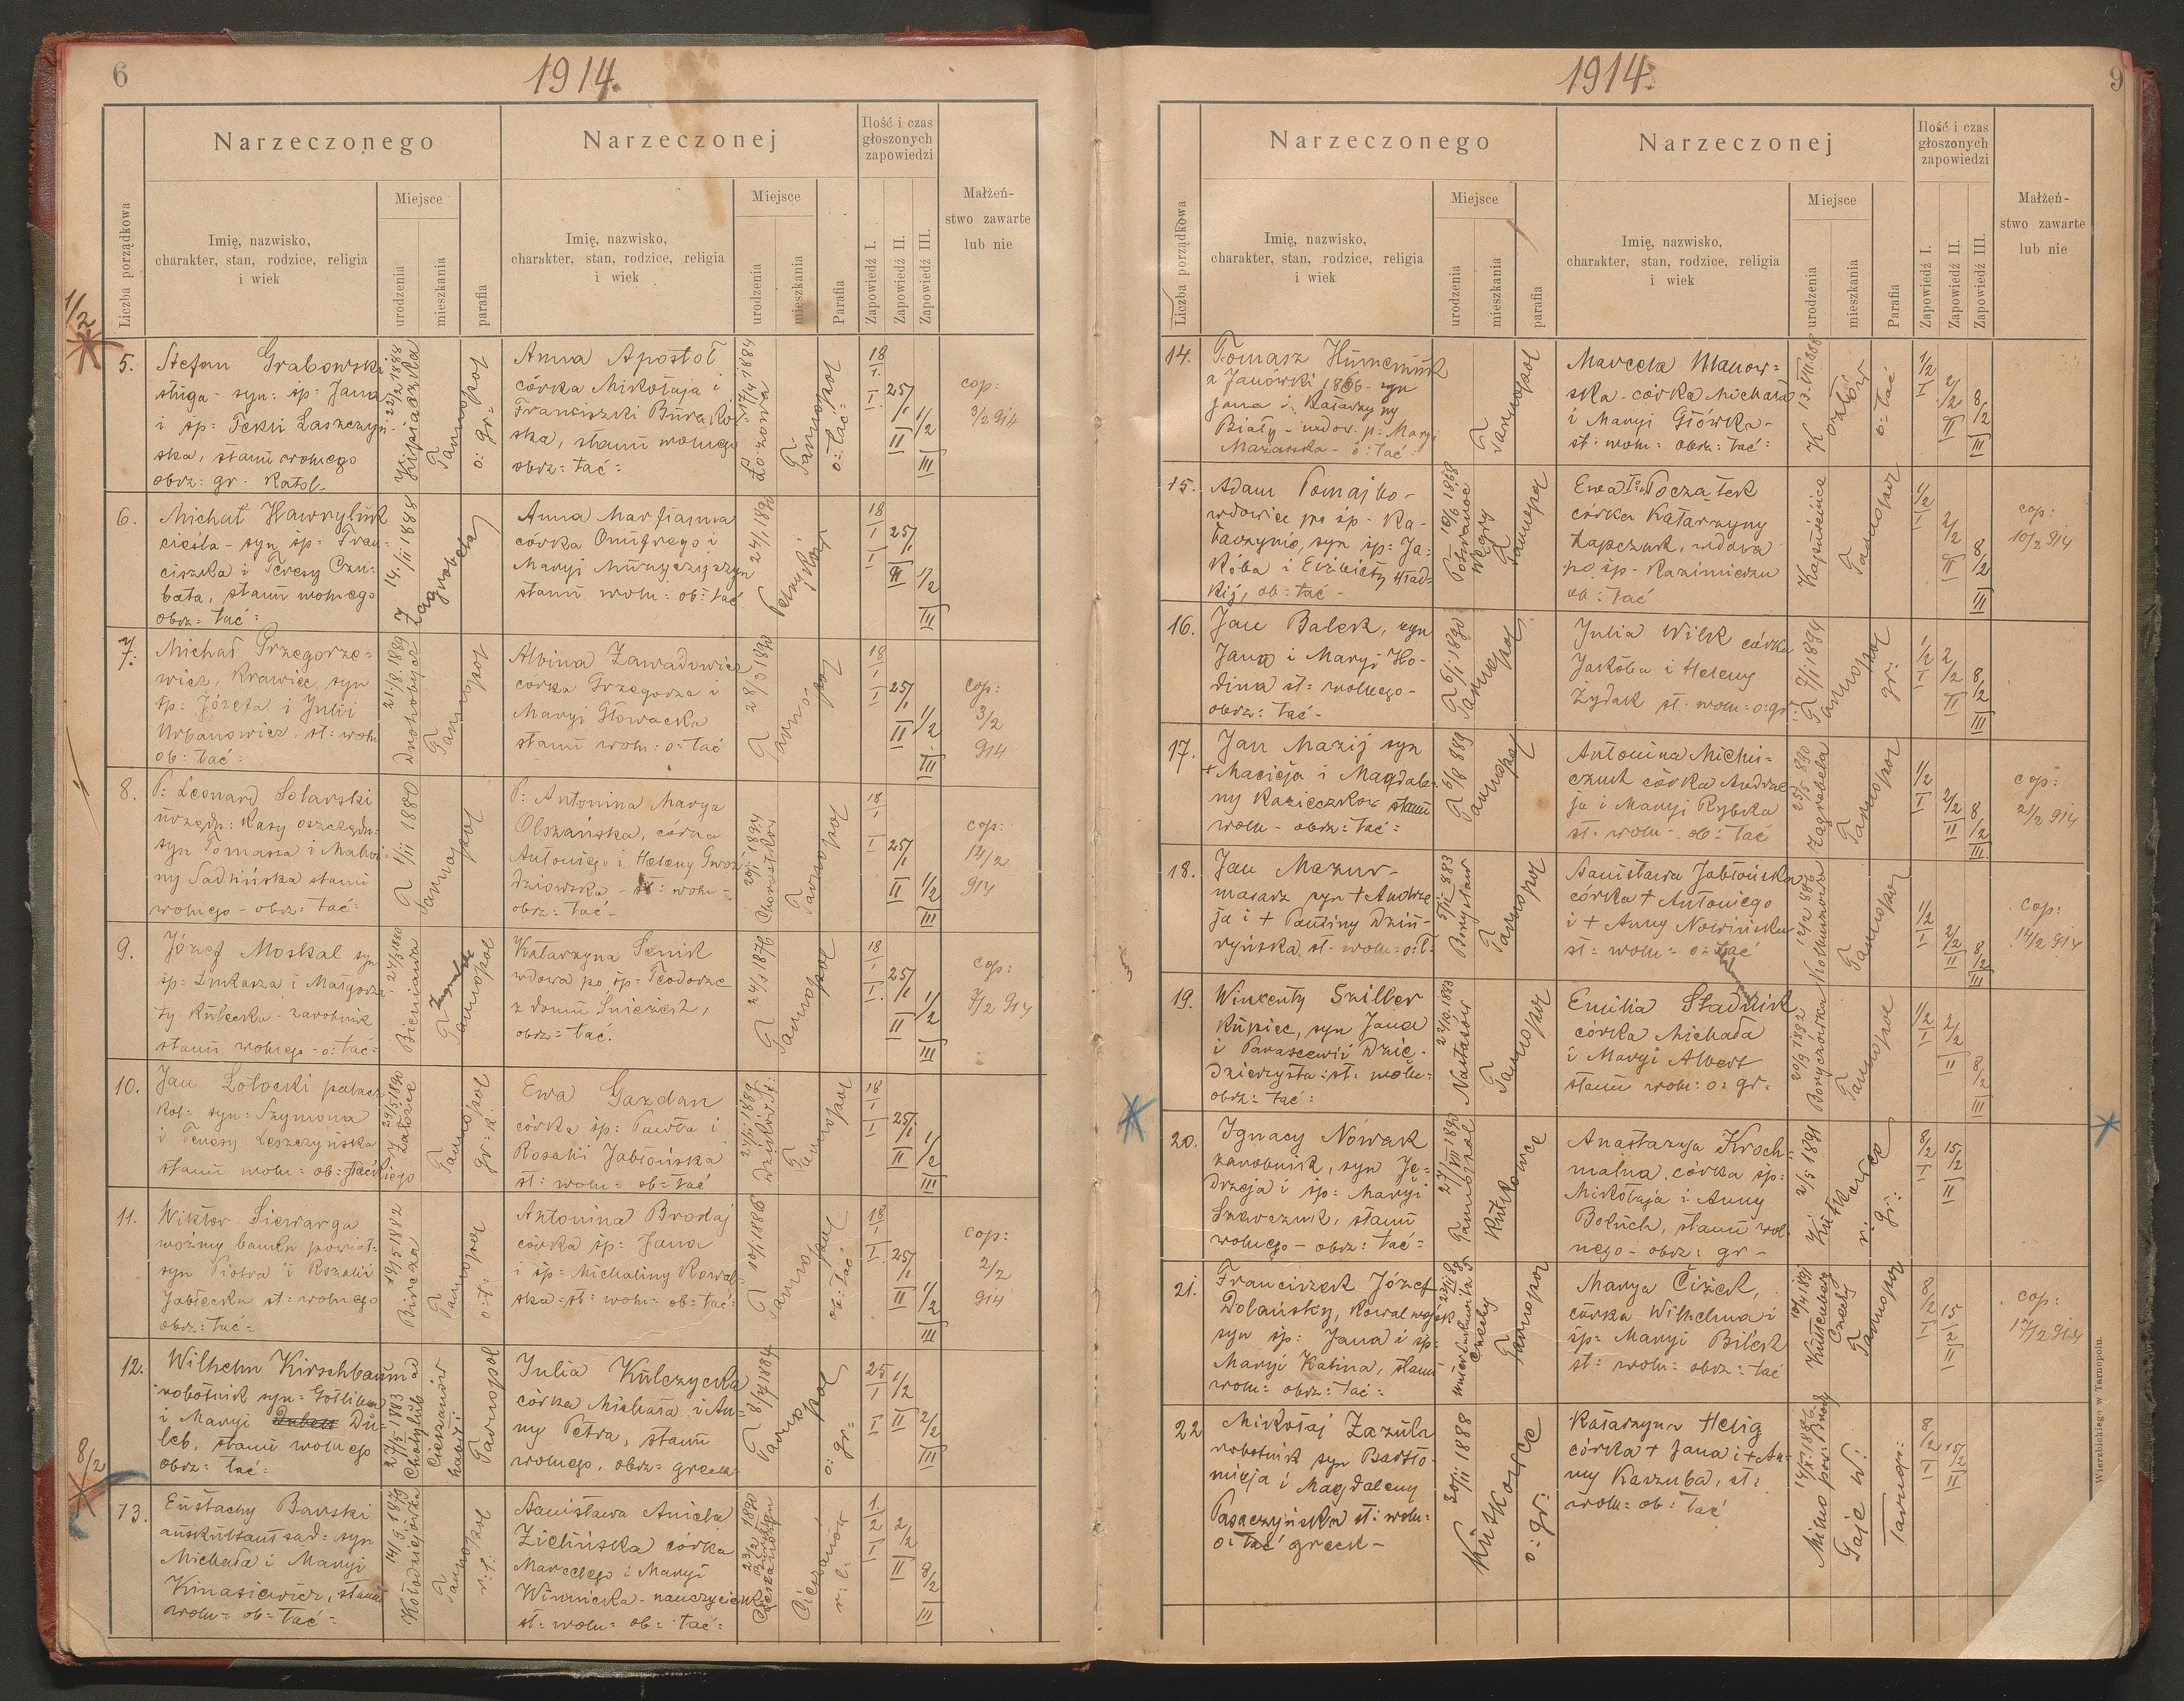 6
1914.
Narzeczonego
Narzeczonej
Ilość i czas
głoszonych
zapowiedzi
Liczba porządkowa
Imię, nazwisko,
charakter, stan, rodzice, religia
i wiek
Miejsce
urodzenia
mieszkania
parafia
Imię, nazwisko,
charakter, stan, rodzice, religia
i wiek
Miejsce
urodzenia
mieszkania
Parafia
Zapowiedź I.
Zapowiedź II.
Zapowiedź III.
Małżeń-
stwo zawarte
lub nie
1/2
5.
Stefan Grabowski
sługa - syn: śp: Jana
i śp: Tekli Laszczyń-
ska, stanu wolnego
obrz: gr. katol-
Tarnopol
o: gr:
Anna Apostoł
córka Mikołaja i
Franciszki
ska, stanu wolnego
obrz: łać:
17/4 1884
Łozowa
Tarnopol
o: łać:
18
I
25/1
II
1/2
III
cop:
3/2 914
6.
Michał Hawryluk
cieśla - syn śp: Fran-
ciszka i Teresy Czu-
bata, stanu wolnego
obrz: łać:
14/II 1888
Zagrobela
Anna Marjianna
córka Onufrego i
Maryi
stanu woln: ob: łać
18
I
25/1
II
1/2
III
7.
Michał Grzegorze-
wicz, krawiec, syn
śp: Józefa i Julii
Urbanowicz, st: woln
ob: łać:
21/8 1889
Drohobycz
Tarnopol
Albina Zawadowicz
córka Grzegorza i
Maryi Głowacka
stanu woln: o: łać
Tarnopol
18
I
25/1
II
1/2
III
cop:
3/2
914
8.
P: Leonard Solarski
urzędn: Kasy oszczędn:
syn Tomasza i Malwi-
ny Sadlińska stanu
wolnego - obrz: łać:
1/II 1880
Tarnopol
P: Antonina Marya
Olszańska, córka
Antoniego i Heleny Gwoź
dziowska - st: woln -
obrz: łać -
Chorostków
Tarnopol
18
I
25/1
II
1/2
III
cop:
14/2
914
9.
Józef Moskal syn
śp: Łukasza i Małgorza-
ty Kułecka - zarobnik
stanu wolnego - o: łać:
Bieniawa
Tarnopol
Katarzyna Senik
wdowa po śp: Teodorze
z domu Śnieżek,
obrz: łać.
24/3 1876
Tarnopol
18
I
25/1
II
1/2
III
cop:
7/2 914
10.
Jan Łotocki
kol: syn: Szymona
i Teresy Leszczyńska
stanu woln: ob: łacińskiego
29/5 1890
Załoźce
Tarnopol
gr: k:
Ewa Gazdan
córka śp: Pawła i
Rozalii Jabłońska
st: woln: ob: łać
Tarnopol
18
I
25/1
II
1/2
III
11.
Wiktor Siewarga
woźny banku powiat:
syn Piotra i Rozalii
Jabłecka st: wolnego
obrz: łać:
19/5 1882
Bircza
Tarnopol
o: ł:
Antonina Brodaj
córka śp: Jana
i śp: Michaliny Kowal-
ska: st: woln: ob: łać:
10/1 1886
Tarnopol
ob: łać
18
I
25/1
II
1/2
III
cop:
2/2
914
8/2
12.
Wilhelm Kirschbaum
robotnik syn: Gottliba
i Maryi Du-
leb, stanu wolnego
obrz: łać:
27/5 1883
Cieszanów
Tarnopol
Julia Kulczycka
córka Michała i An-
ny Petra, stanu
wolnego. obrz: greck-
Tarnopol
o: gr:
25
I
1/2
II
2/2
III
13.
Eustachy Barski
auskultant sąd: syn
Michała i Maryi
Kinasiewicz, stanu
woln: ob: łać:
14/9 1879
Kołodziejówka
Tarnopol
r: ł:
Stanisława Aniela
Zielińska córka
Marcelego i Maryi
Winnicka - nauczycielka
st: woln: ob: łać:
23/2 1890
Cieszanów
1/2
I
2/2
II
8/2
III
9
1914.
Narzeczonego
Narzeczonej
Ilość i czas
głoszonych
zapowiedzi
Liczba porządkowa
Imię, nazwisko,
charakter, stan, rodzice, religia
i wiek
Miejsce
urodzenia
mieszkania
parafia
Imię, nazwisko,
charakter, stan, rodzice, religia
i wiek
Miejsce
urodzenia
mieszkania
Parafia
Zapowiedź I.
Zapowiedź II.
Zapowiedź III.
Małżeń-
stwo zawarte
lub nie
14.
Tomasz
z Janówki 1866 - syn
Jana i Katarzyny
Biały - wdow. p: Maryi
Mazarska - o: łać
Tarnopol
Marcela Manow-
ska - córka Michała
i Maryi Główka -
st: woln: obrz: łać:
Kozłów
o: łać
1/2
I
2/2
II
8/2
III
15.
Adam Pomajbo -
wdowiec po śp - Ka-
tarzynie, syn śp: Ja-
kóba i Elżbiety
ob: łać -
10/6 1868
Węgry
Tarnopol
Ewa Początek
córka Katarzyny
Łapczuk, wdowa
po śp - Kazimierzu
ob: łać
Tarnopol
1/2
I
2/2
II
8/2
III
cop:
10/2 914
16.
Jan Balek, syn
Jana i Maryi Ho-
dina st: wolnego -
obrz: łać -
6/1 1890
Tarnopol
Julia Wilk córka
Jakóba i Heleny
Żydak st: woln: o: gr:
7/1 1894
Tarnopol
gr:
1/2
I
2/2
II
8/2
III
17.
Jan Mazij syn
+ Macieja i Magdale-
ny Kazieczków stanu
woln - obrz: łać:
6/8 889
Tarnopol
Antonina Michi-
czuk córka Andrze
ja i Maryi Rybka
st: woln -. ob: łać
25/5 890
Zagrobela
Tarnopol
1/2
I
2/2
II
8/2
III
cop:
21/2 914
18.
Jan Mazur -
masarz syn + Andrze
ja i + Pauliny Dziu-
ryńska, st: woln: o: ł:
883
Borysław
Tarnopol
Stanisława Jabłońska
córka + Antoniego
i + Anny Nowińska
st: woln: o: łać
12/2 886
Tarnopol
1/2
I
2/2
II
8/2
III
cop:
14/2 914
19.
Wincenty Sziller
kupiec, syn Jana
i Parascewii Dzie-
dzierzysta: st: woln:
obrz: łać:
22/10 1883
Nastasów
Tarnopol
Emilia Stadnik
córka Michała
i Maryi Albert
stanu woln: o: gr:
20/9 1892
Boryczówka
Tarnopol
1/2
I
2/2
II
8/2
III
20.
Ignacy Nowak
zarobnik, syn Ję-
drzeja i śp: Maryi
Szewczuk, stanu
wolnego - obrz: łać:
27/VII 1890
Tarnopol
Kutkowce
Anastazya Kroch-
malna, córka śp:
Mikołaja i Anny
Bołuch, stanu wol
nego - obrz: gr -
2/5 1891
Kutkowce
r: gr:
8/2
I
15/2
II
21.
Franciszek Józef
Dolańsky, kowal wojsk
syn śp: Jana i śp:
Maryi Kabina, stanu
woln: obrz: łać:
Czechy
Tarnopol
Marya Čižek,
córka Wilhelma i
śp: Maryi Bilek
st: woln: obrz: łać
10/4 1891
Kuttenberg
Czechy
Tarnopol
8/2
I
15/2
II
cop:
17/2 914
22
Mikołaj Zazula
robotnik syn Bartło-
mieja i Magdaleny
Pasaczyńska st: woln:
o: łać greck -
20/II 1888
Kutkowce
o: gr:
Katarzyna Helig
córka + Jana i + An-
ny Kaszuba, st:
woln: ob: łać
Milno pow: Brody
Gaje W:
8/2
I
15/2
II
Wierzbickiego w Tarnopolu.